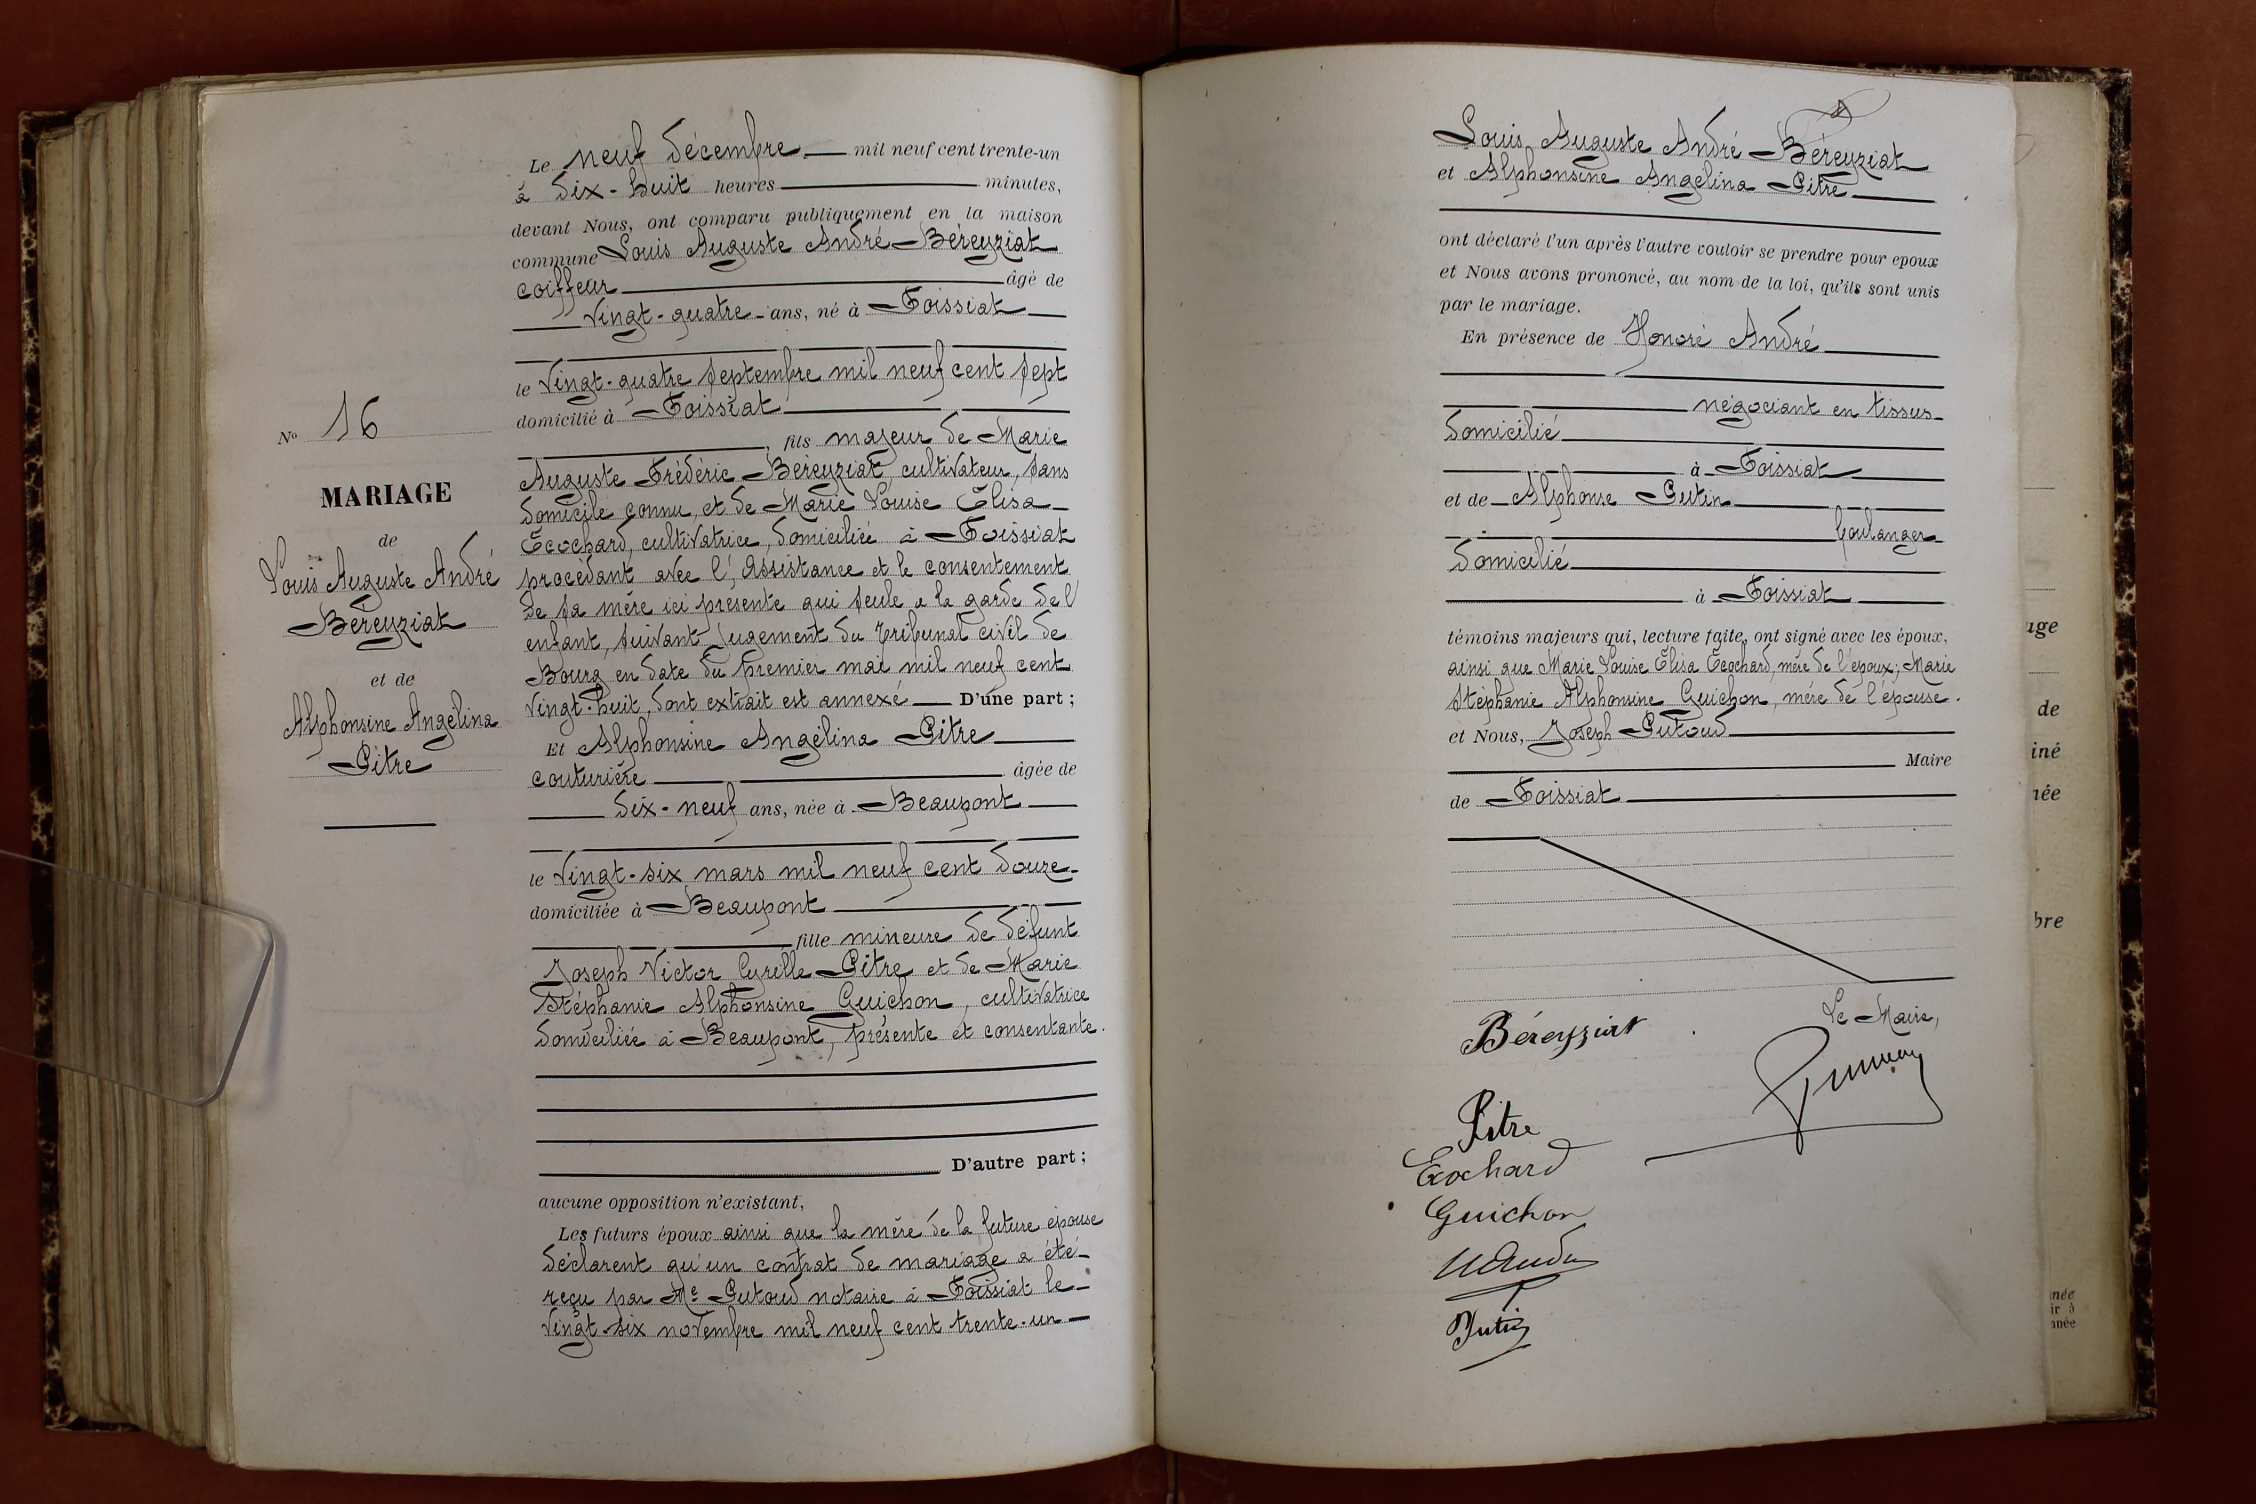 Le neuf décembre mil neuf cent trente-un
à dix-huit heures minutes,
devant Nous, ont comparu publiquement en la maison
commune Louis Auguste André Béreyziat
coiffeur âgé de
vingt-quatre ans, né à Foissiat
le vingt-quatre septembre mil neuf cent sept
domicilié à Foissiat
, fils majeur de Marie
Auguste Frédéric Béreyziat, cultivateur, sans
domicile connu, et de Marie Louise Elisa
Ecochard, cultivatrice, domiciliée à Foissiat
procédant avec l'assistance et le consentement
de sa mère ici présente qui seule a la garde de l'
enfant, suivant jugement du Tribunal civil de
Bourg en date du premier mai mil neuf cent
vingt-huit, dont extrait est annexé D'une part ;
Et Alphonsine Angelina Pitre
couturière âgée de
dix-neuf ans, née à Beaupont
le vingt-six mars mil neuf cent douze
domiciliée à Beaupont
fille mineure de défunt
Joseph Victor Cyrille Pitre et de Marie
Stéphanie Alphonsine Guichon, cultivatrice
domiciliée à Beaupont, présente et consentante.
D'autre part ;
aucune opposition n'existant,
Les futurs époux ainsi que la mère de la future épouse
déclarent qu'un contrat de mariage a été
reçu par Me Putoud notaire à Foissiat le
vingt-six novembre mil neuf cent trente-un
No 16
MARIAGE
de
Louis Auguste André
Béreyziat
et de
Alphonsine Angelina
Pitre
Louis Auguste André Béreyziat
et Alphonsine Angelina Pitre
ont déclaré l'un après l'autre vouloir se prendre pour epoux
et Nous avons prononcé, au nom de la loi, qu'ils sont unis
par le mariage.
En présence de Honoré André
négociant en tissus
domicilié
à Foissiat
et de Alphonse Putin
boulanger
domicilié
à Foissiat
témoins majeurs qui, lecture faite, ont signé avec les époux,
ainsi que Marie Louise Elisa Ecochard, mère de l'époux; Marie
Stéphanie Alphonsine Guichon, mère de l'épouse.
et Nous, Joseph Putoud
Maire
de Foissiat
Le Maire,
Béreyziat
Pitre
Ecochard
Guichon
Putin
uge
de
iné
née
bre
née
ir à
nnée